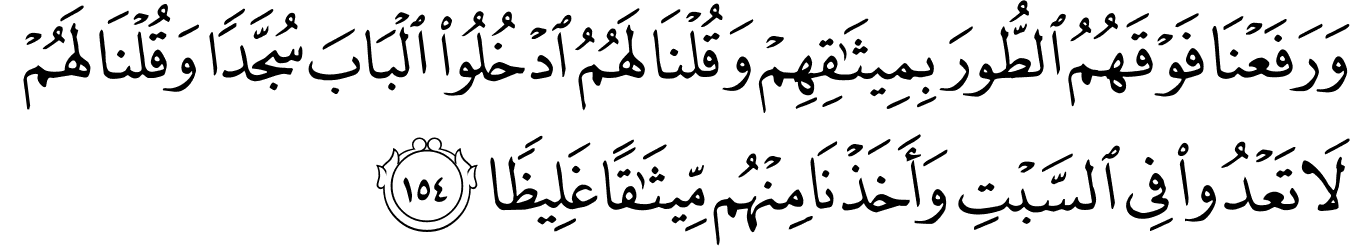 وَرَفَعْنَا فَوْقَهُمُ ٱلطُّورَ بِمِيثَـٰقِهِمْ وَقُلْنَا لَهُمُ ٱدْخُلُوا۟ ٱلْبَابَ سُجَّدًا وَقُلْنَا لَهُمْ
لَا تَعْدُوا۟ فِى ٱلسَّبْتِ وَأَخَذْنَا مِنْهُم مِّيثَـٰقًا غَلِيظًا ١٥٤